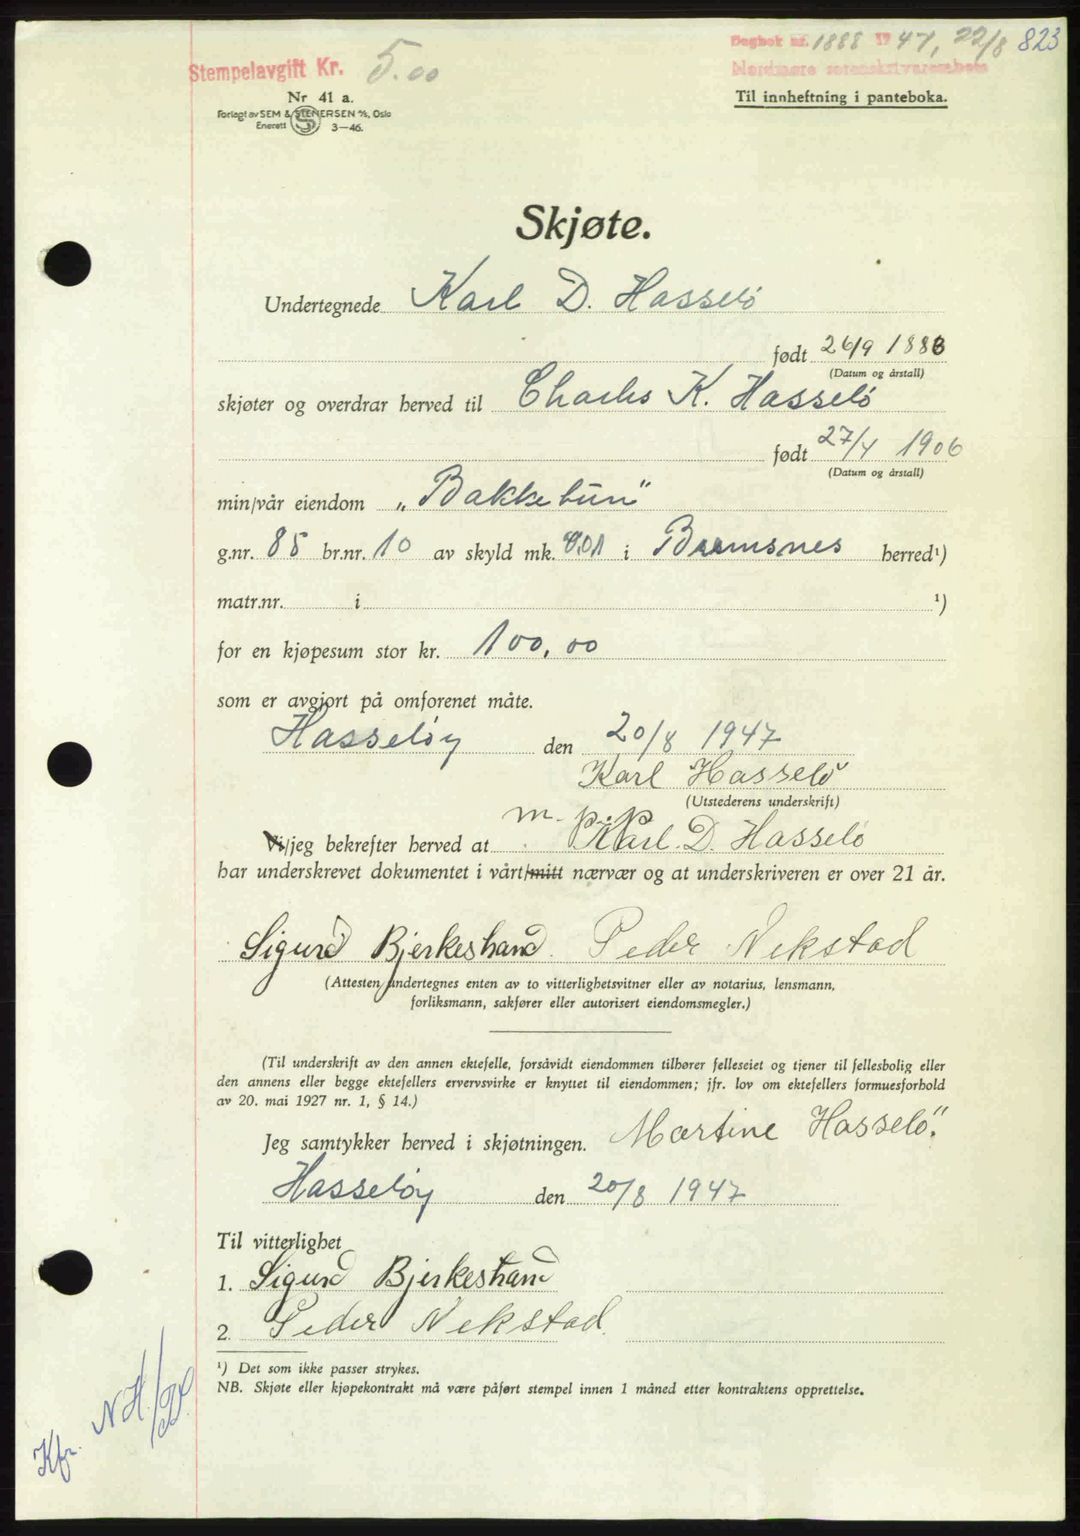 Dagbok nr. 1888 1947, 22/8 823
Stempelavgift Kr. 5.00
Nordmøre sorenskriverembete
Nr 41 a.
Til innheftning i panteboka.
Forlagt av SEM & STENERSEN A/S, Oslo
Enerett S 3—46.
Skjøte.
Undertegnede Karl D. Hasselö
født 26/9 1883
(Datum og årstall)
skjøter og overdrar herved til Charles K. Hasselö
født 27/4 1906
(Datum og årstall)
min/vår eiendom „Bakketun"
g.nr. 85 br.nr. 10 av skyld mk. 0.01 i Bremsnes herred¹)
matr.nr. i ¹)
for en kjøpesum stor kr. 100,00
som er avgjort på omforenet måte.
Hasseløy den 20/8 1947
Karl Hasselö
(Utstederens underskrift)
m. p. p.
Vi/jeg bekrefter herved at Karl. D. Hasselö
har underskrevet dokumentet i vårt/mitt nærvær og at underskriveren er over 21 år.
Sigurd Bjerkestrand. Peder Nekstad
(Attesten undertegnes enten av to vitterlighetsvitner eller av notarius, lensmann,
forliksmann, sakfører eller autorisert eiendomsmegler.)
(Til underskrift av den annen ektefelle, forsåvidt eiendommen tilhører felleseiet og tjener til fellesbolig eller
den annens eller begge ektefellers ervervsvirke er knyttet til eiendommen; jfr. lov om ektefellers formuesforhold
av 20. mai 1927 nr. 1, § 14.)
Jeg samtykker herved i skjøtningen. Martine Hasselö.
Hasseløy den 20/8 1947
Til vitterlighet
1. Sigurd Bjerkestrand
2. Peder Nekstad
¹) Det som ikke passer strykes.
NB. Skjøte eller kjøpekontrakt må være påført stempel innen 1 måned etter kontraktens opprettelse.
Kfr. NH/